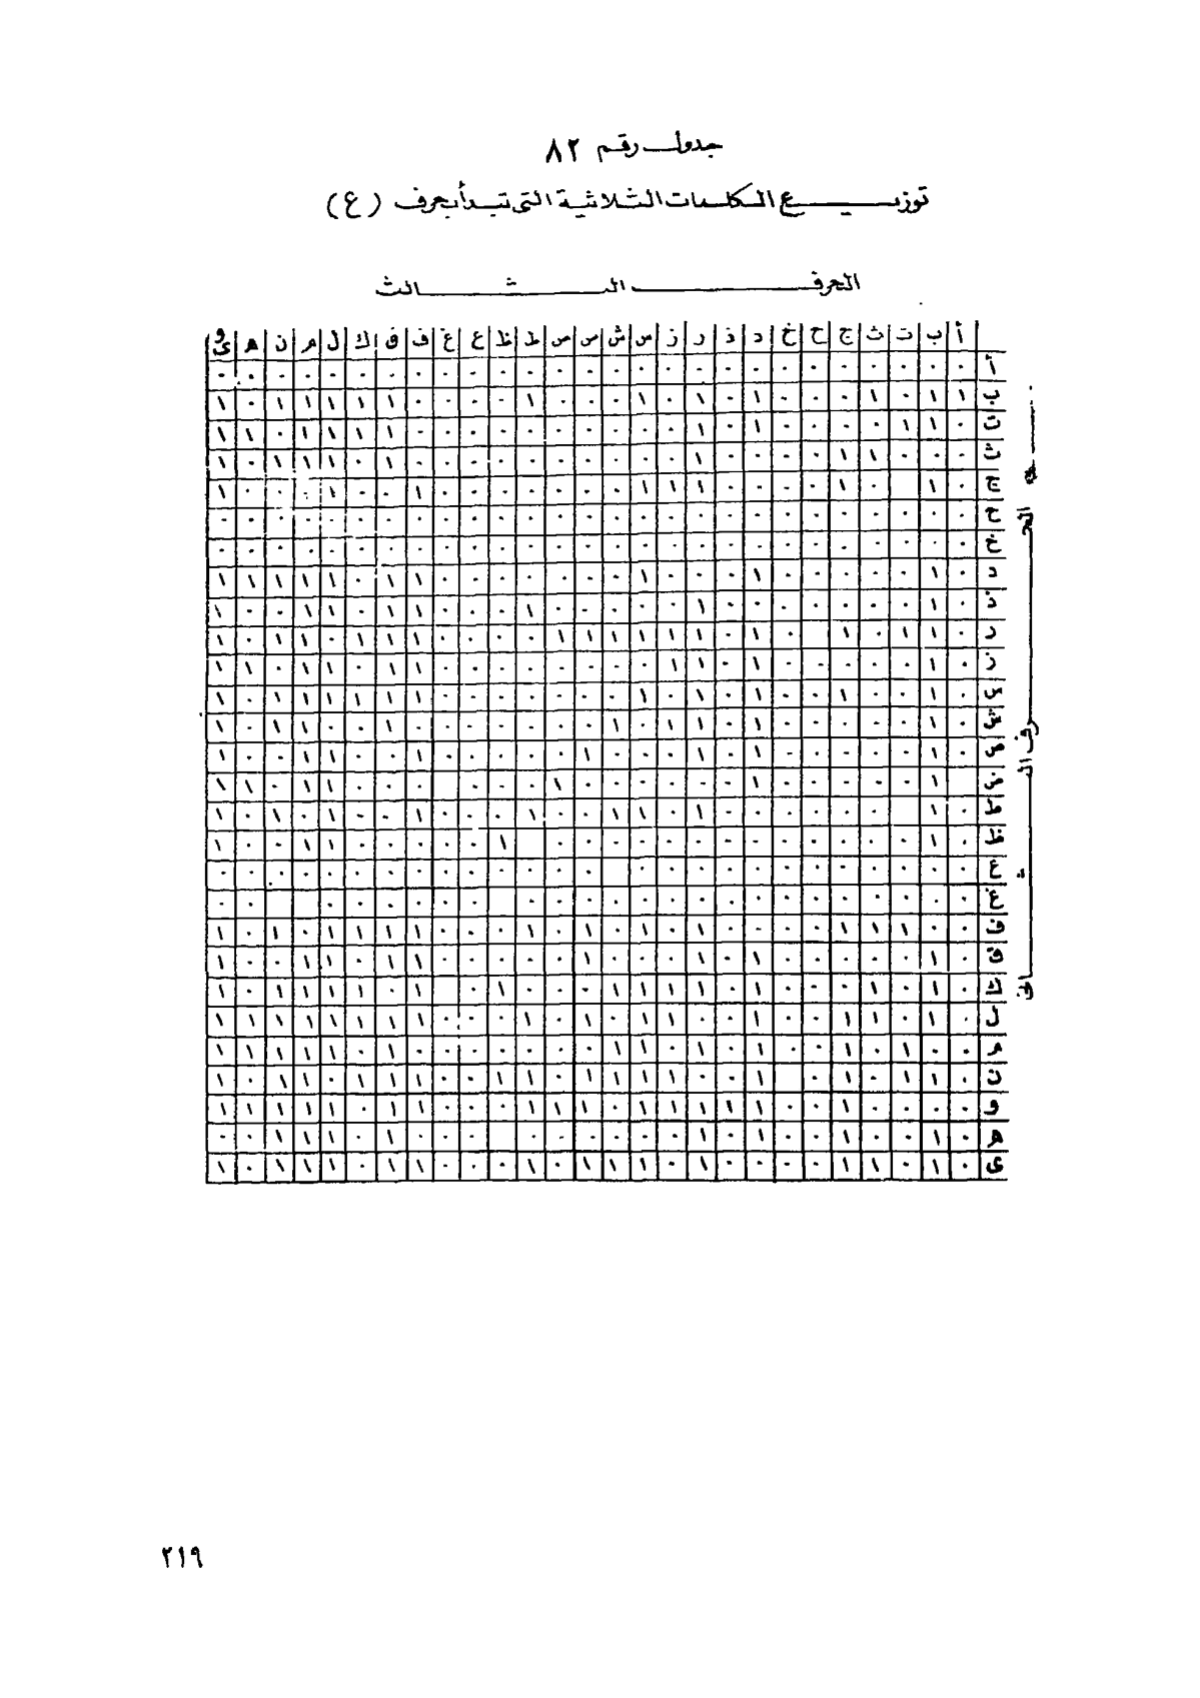 جدول رقم ٨٢
توزيع الكلمات الثلاثية التى تبدأ بحرف (ع)
الحرف الثالث
أ ب ت ث ج ح خ د ذ ر ز س ش ص ض ط ظ ع غ ف ق ك ل م ن ه و ى
أ ٠ ٠ ٠ ٠ ٠ ٠ ٠ ٠ ٠ ٠ ٠ ٠ ٠ ٠ ٠ ٠ ٠ ٠ ٠ ٠ ٠ ٠ ٠ ٠ ٠ ٠ ٠
ب ١ ١ ٠ ١ ٠ ٠ ٠ ١ ٠ ١ ٠ ١ ٠ ٠ ٠ ١ ٠ ٠ ٠ ٠ ١ ١ ١ ١ ١ ٠ ١
ت ٠ ١ ١ ٠ ٠ ٠ ٠ ١ ٠ ١ ٠ ٠ ٠ ٠ ٠ ٠ ٠ ٠ ٠ ٠ ١ ١ ١ ١ ٠ ١ ١
ث ٠ ٠ ٠ ١ ١ ٠ ٠ ٠ ٠ ١ ٠ ٠ ٠ ٠ ٠ ٠ ٠ ٠ ٠ ٠ ١ ٠ ١ ١ ١ ٠ ١
ج ٠ ١ ٠ ١ ٠ ٠ ٠ ٠ ١ ١ ١ ٠ ٠ ٠ ٠ ٠ ٠ ٠ ١ ٠ ٠ ١ ٠ ٠ ٠ ١
ح ٠ ٠ ٠ ٠ ٠ ٠ ٠ ٠ ٠ ٠ ٠ ٠ ٠ ٠ ٠ ٠ ٠ ٠ ٠ ٠ ٠ ٠ ٠ ٠ ٠ ٠ ٠
خ ٠ ٠ ٠ ٠ ٠ ٠ ٠ ٠ ٠ ٠ ٠ ٠ ٠ ٠ ٠ ٠ ٠ ٠ ٠ ٠ ٠ ٠ ٠ ٠ ٠ ٠ ٠
د ٠ ١ ٠ ٠ ٠ ٠ ٠ ١ ٠ ٠ ٠ ١ ٠ ٠ ٠ ٠ ٠ ٠ ٠ ١ ١ ٠ ١ ١ ١ ١ ١
ذ ٠ ١ ٠ ٠ ٠ ٠ ٠ ٠ ٠ ١ ٠ ٠ ٠ ٠ ٠ ١ ٠ ٠ ٠ ١ ١ ٠ ١ ١ ٠ ٠ ١
ر ٠ ١ ١ ٠ ١ ٠ ١ ٠ ١ ١ ١ ١ ١ ١ ٠ ٠ ٠ ٠ ١ ١ ١ ٠ ١ ١ ٠ ١
ز ٠ ١ ٠ ٠ ٠ ٠ ٠ ١ ٠ ١ ١ ٠ ٠ ٠ ٠ ٠ ٠ ٠ ٠ ١ ١ ٠ ١ ١ ٠ ١ ١
س ٠ ١ ٠ ٠ ١ ٠ ٠ ١ ٠ ١ ٠ ١ ٠ ٠ ٠ ٠ ٠ ٠ ٠ ١ ١ ١ ١ ١ ١ ٠ ١
ش ٠ ١ ٠ ٠ ٠ ٠ ٠ ١ ٠ ١ ١ ٠ ١ ٠ ٠ ٠ ٠ ٠ ٠ ٠ ١ ٠ ٠ ١ ١ ٠ ١
ص ٠ ١ ٠ ٠ ٠ ٠ ٠ ١ ٠ ١ ٠ ٠ ٠ ١ ٠ ٠ ٠ ٠ ٠ ١ ٠ ٠ ١ ١ ٠ ٠ ١
ض ١ ٠ ٠ ٠ ٠ ٠ ١ ٠ ٠ ٠ ٠ ٠ ٠ ١ ٠ ٠ ٠ ٠ ٠ ٠ ١ ١ ٠ ١ ١
ط ٠ ١ ٠ ٠ ٠ ٠ ٠ ٠ ١ ٠ ١ ١ ٠ ٠ ١ ٠ ٠ ٠ ١ ٠ ٠ ١ ٠ ١ ٠ ١
ظ ٠ ١ ٠ ٠ ٠ ٠ ٠ ٠ ٠ ٠ ٠ ٠ ٠ ٠ ٠ ١ ٠ ٠ ٠ ٠ ٠ ١ ١ ٠ ٠ ١
ع ٠ ٠ ٠ ٠ ٠ ٠ ٠ ٠ ٠ ٠ ٠ ٠ ٠ ٠ ٠ ٠ ٠ ٠ ٠ ٠ ٠ ٠ ٠ ٠ ٠ ٠
غ ٠ ٠ ٠ ٠ ٠ ٠ ٠ ٠ ٠ ٠ ٠ ٠ ٠ ٠ ٠ ٠ ٠ ٠ ٠ ٠ ٠ ٠ ٠ ٠
ف ٠ ٠ ١ ١ ١ ٠ ٠ ٠ ٠ ١ ٠ ١ ٠ ١ ٠ ١ ٠ ٠ ٠ ١ ١ ١ ١ ٠ ١ ٠ ١
ق ٠ ١ ٠ ٠ ٠ ٠ ٠ ١ ٠ ١ ٠ ٠ ٠ ١ ٠ ٠ ٠ ٠ ٠ ١ ١ ٠ ١ ١ ٠ ٠ ١
ك ٠ ١ ٠ ١ ٠ ٠ ٠ ١ ٠ ١ ١ ١ ١ ٠ ٠ ٠ ١ ٠ ١ ٠ ١ ١ ١ ١ ٠ ١
ل ٠ ١ ٠ ١ ١ ٠ ٠ ١ ٠ ٠ ١ ١ ٠ ١ ٠ ١ ٠ ٠ ٠ ١ ١ ١ ١ ١ ١ ١ ١
م ٠ ٠ ١ ٠ ١ ٠ ٠ ١ ٠ ١ ٠ ١ ١ ٠ ٠ ٠ ٠ ٠ ٠ ٠ ١ ٠ ١ ١ ١ ١ ١
ن ٠ ١ ١ ٠ ١ ٠ ١ ٠ ٠ ١ ١ ١ ١ ٠ ١ ١ ٠ ٠ ١ ١ ١ ٠ ١ ١ ٠ ١
و ٠ ٠ ٠ ٠ ١ ٠ ٠ ١ ١ ١ ١ ١ ٠ ١ ١ ١ ٠ ٠ ٠ ١ ١ ٠ ١ ١ ١ ١ ١
ه ٠ ١ ٠ ٠ ١ ٠ ٠ ١ ٠ ١ ٠ ٠ ٠ ٠ ٠ ٠ ٠ ٠ ٠ ١ ٠ ١ ١ ١ ٠ ٠
ى ٠ ١ ٠ ١ ١ ٠ ٠ ٠ ٠ ١ ٠ ١ ١ ١ ٠ ١ ٠ ٠ ٠ ١ ١ ٠ ١ ١ ١ ٠ ١
الحرف الثانى
٢١٩